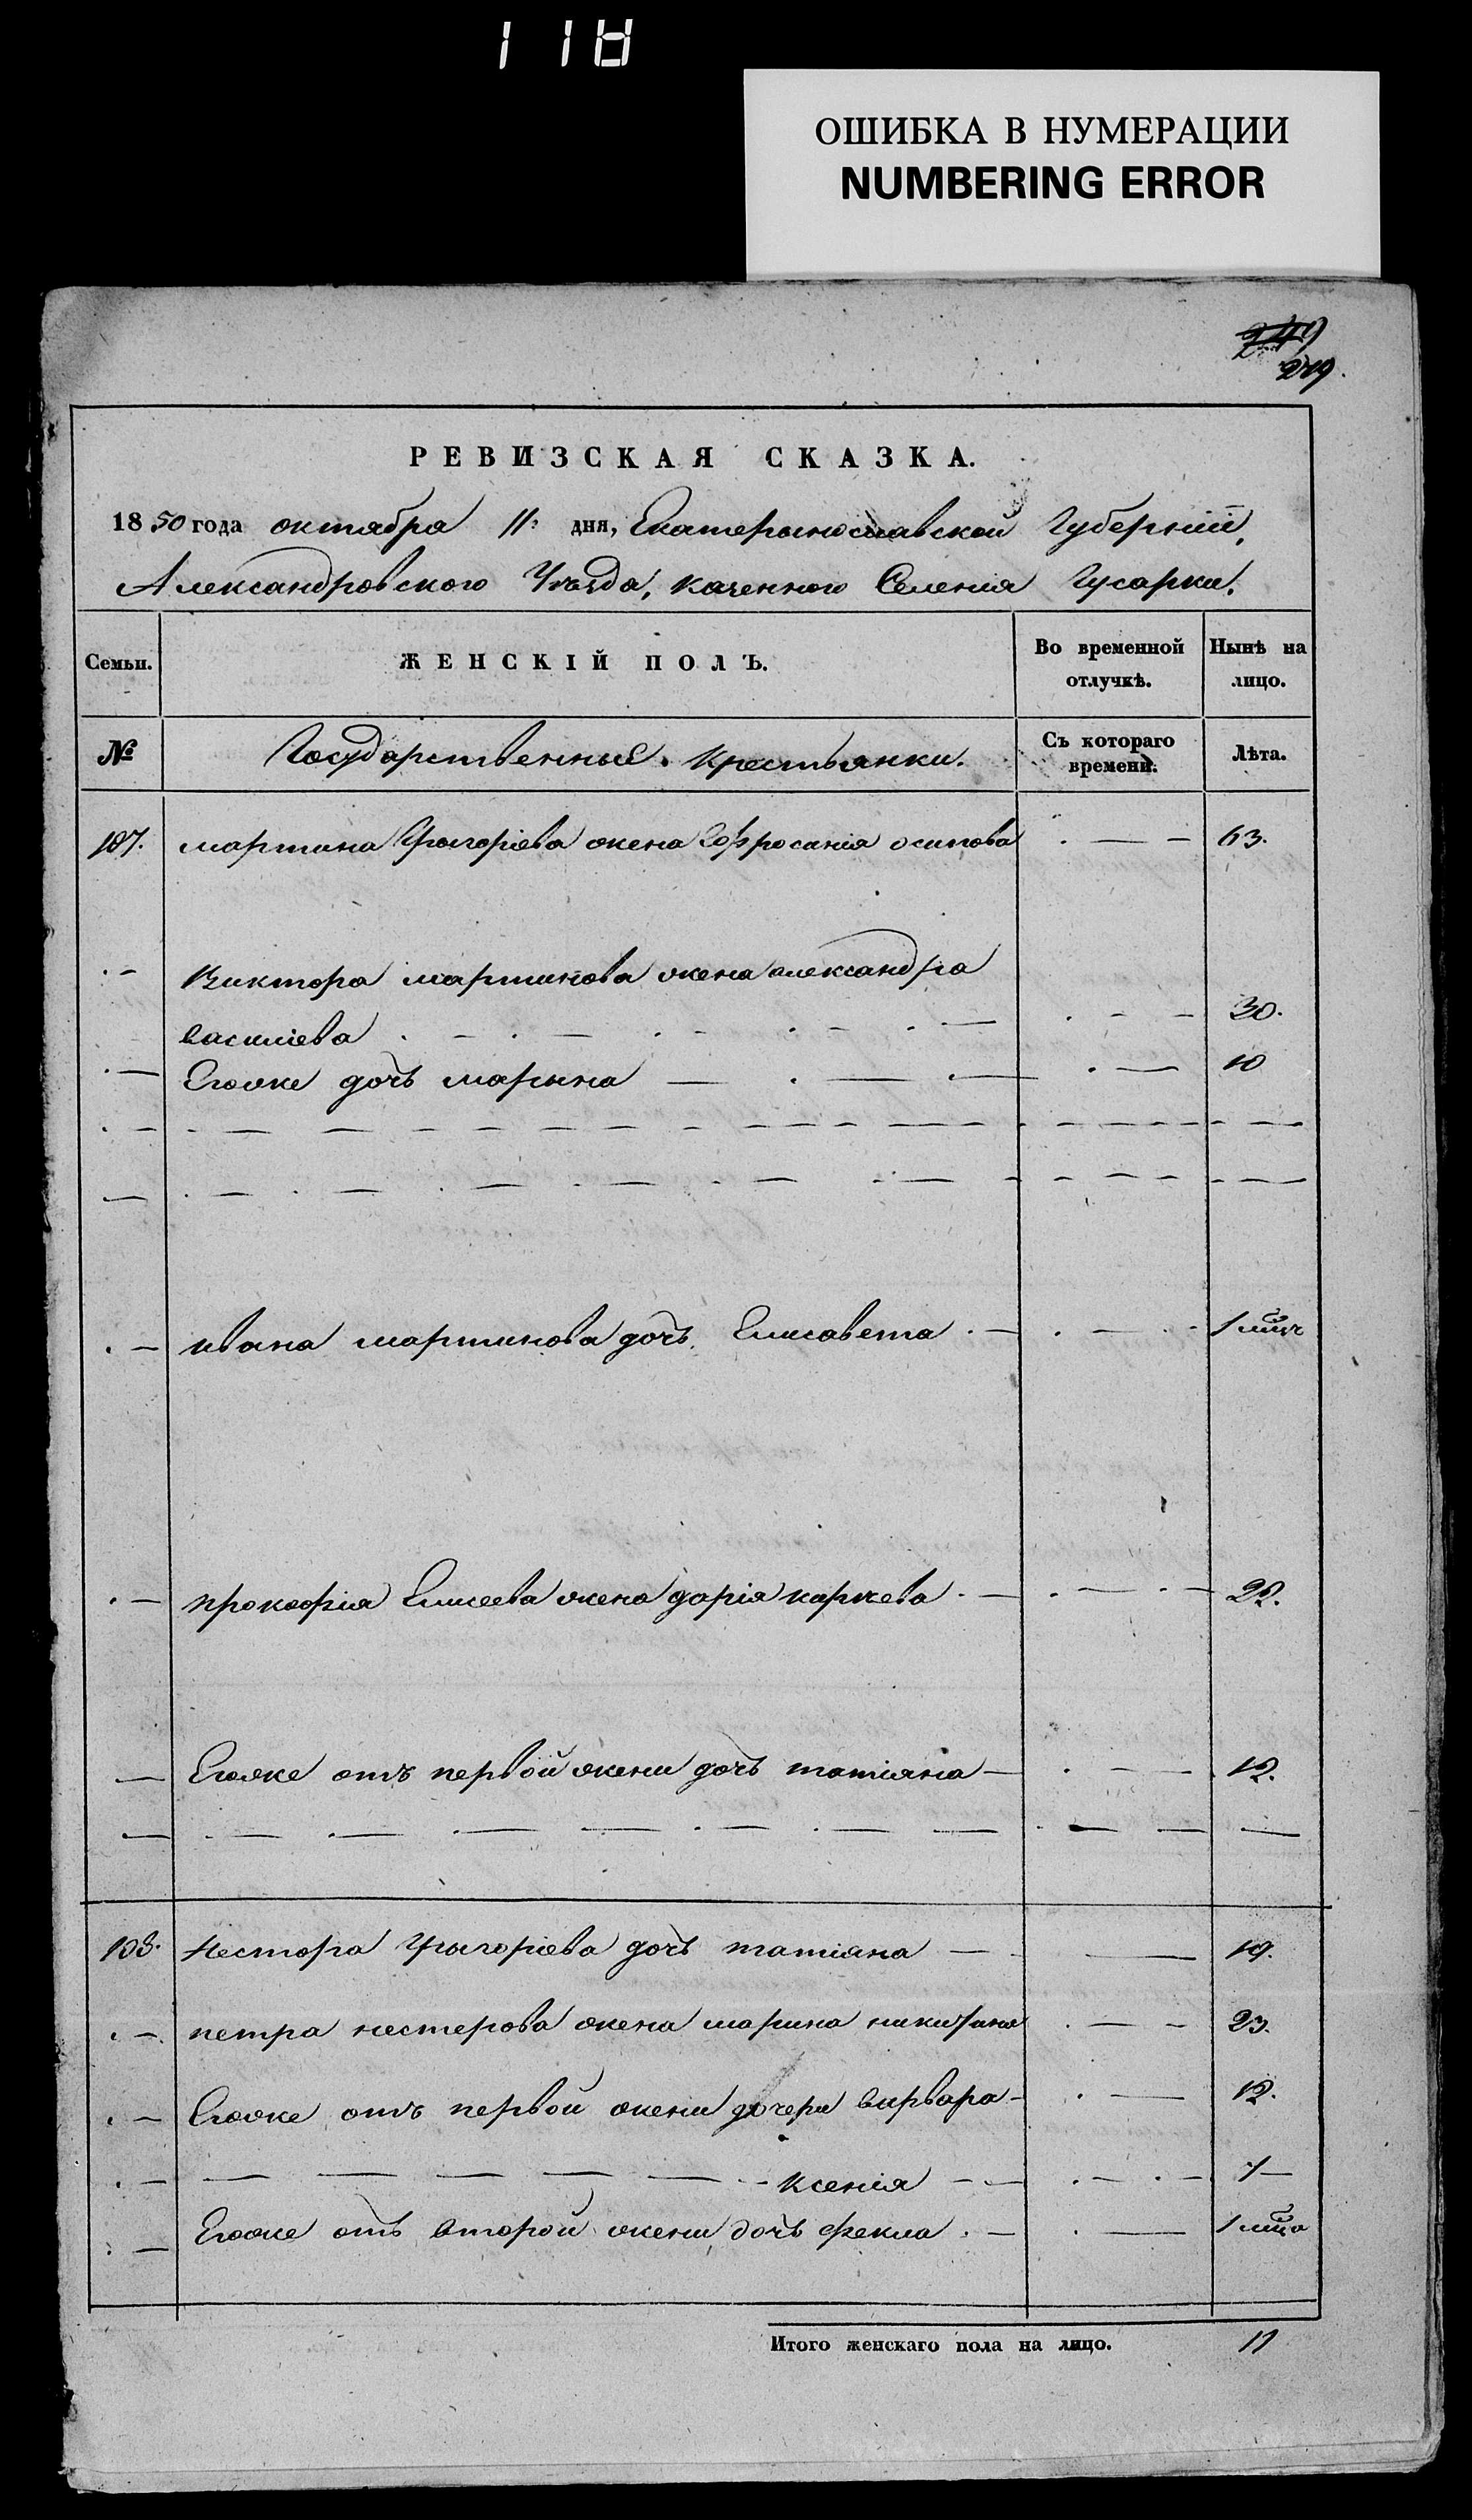 118
ОШИБКА В НУМЕРАЦИИ
NUMBERING ERROR
249
249.
РЕВИЗСКАЯ СКАЗКА.
1850 года октября 11: дня, Екатерынославской Губерніи,
Александровского Уѣзда, казенного Селенія Гусарки.
Семьи.
ЖЕНСКІЙ ПОЛЪ.
Во временной отлучкѣ.
Нынѣ на лицо.
№
Государственные крестьянки.
Съ котораго времени.
Лѣта.
187. мартина Грыгоріева жена Евфросинія осипова - 63.
Виктора мартинова жена александра
василіева - 30.
Егоже дочь марына - 10
ивана мартинова дочь Елисавета - 1
прокофія Елисеева жена дарія - 22.
Егоже отъ первой жени дочь татіяна - 12.
188. Нестора Грыгоріева дочь татіяна - 19.
петра нестерова жена марина никитина - 23.
Егоже отъ первой жени дочери варвара - 12.
ксенія - 7
Егоже отъ второй жени дочь фекла - 1
Итого женскаго пола на лицо. 11